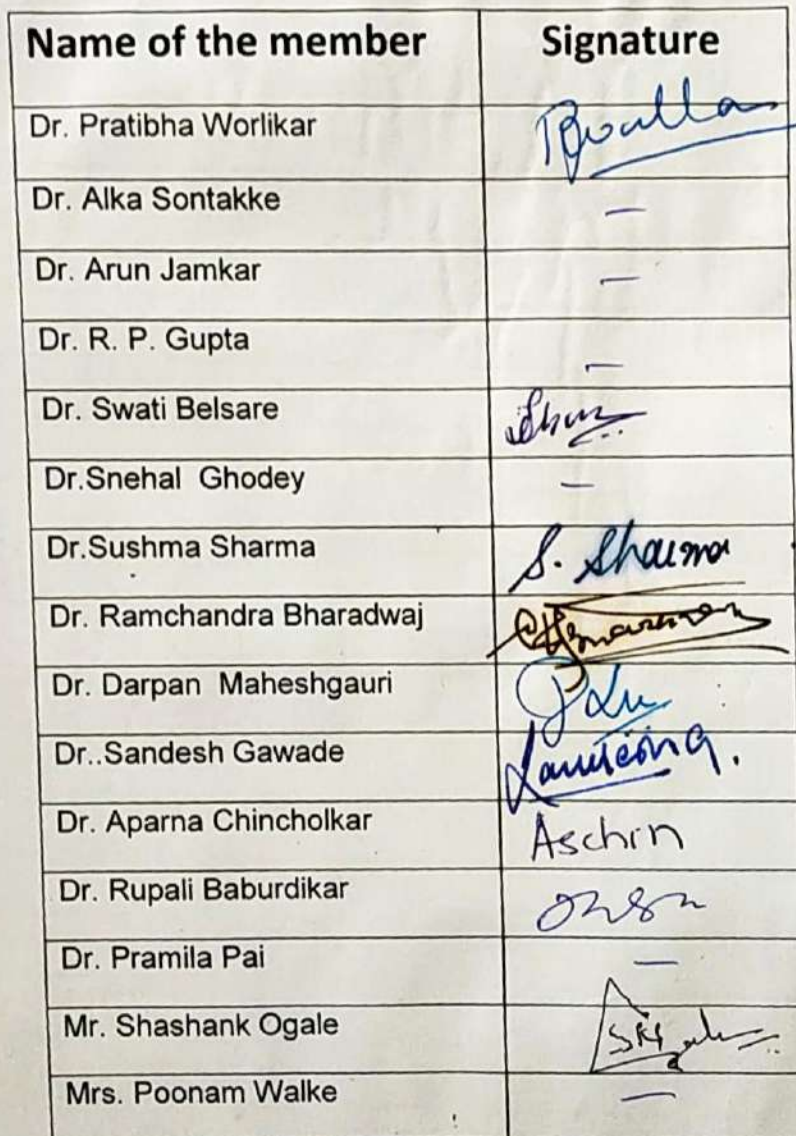 Name of the member Signature
Dr. Pratibha Worlikar
Dr. Alka Sontakke —
Dr. Arun Jamkar —
Dr. R. P. Gupta —
Dr. Swati Belsare
Dr.Snehal Ghodey —
Dr.Sushma Sharma S. Sharma
Dr. Ramchandra Bharadwaj
Dr. Darpan Maheshgauri
Dr..Sandesh Gawade
Dr. Aparna Chincholkar Aschin
Dr. Rupali Baburdikar
Dr. Pramila Pai —
Mr. Shashank Ogale
Mrs. Poonam Walke —